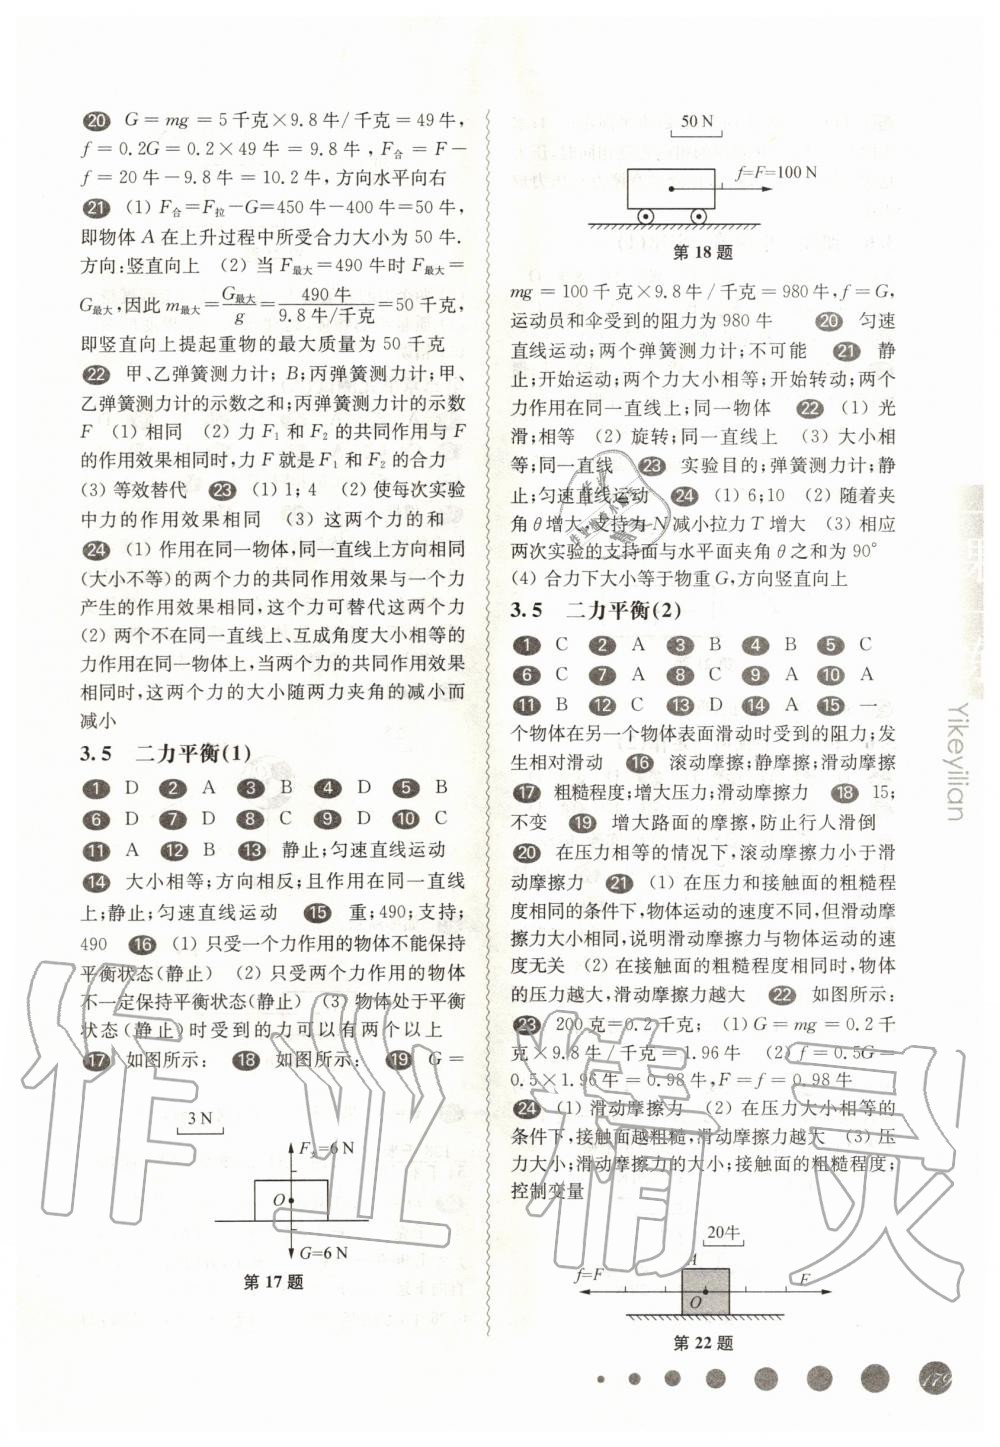 20 G＝mg＝5千克×9.8牛/千克＝49牛,
f＝0.2G＝0.2×49牛＝9.8牛,F合＝F－
f＝20牛－9.8牛＝10.2牛,方向水平向右
21 (1) F合＝F拉－G＝450牛－400牛＝50牛,
即物体A在上升过程中所受合力大小为50牛.
方向:竖直向上 (2) 当F最大＝490牛时F最大＝
G最大,因此m最大＝G最大/g＝490牛/9.8牛/千克＝50千克,
即竖直向上提起重物的最大质量为50千克
22 甲、乙弹簧测力计;B;丙弹簧测力计;甲、
乙弹簧测力计的示数之和;丙弹簧测力计的示数
F (1) 相同 (2) 力F₁和F₂的共同作用与F
的作用效果相同时,力F就是F₁和F₂的合力
(3) 等效替代 23 (1) 1;4 (2) 使每次实验
中力的作用效果相同 (3) 这两个力的和
24 (1) 作用在同一物体,同一直线上方向相同
(大小不等)的两个力的共同作用效果与一个力
产生的作用效果相同,这个力可替代这两个力
(2) 两个不在同一直线上、互成角度大小相等的
力作用在同一物体上,当两个力共同作用效果
相同时,这两个力的大小随两力夹角的减小而
减小
3.5 二力平衡(1)
1 D 2 A 3 B 4 D 5 B
6 D 7 D 8 C 9 D 10 C
11 A 12 B 13 静止;匀速直线运动
14 大小相等;方向相反;且作用在同一直线
上;静止;匀速直线运动 15 重;490;支持;
490 16 (1) 只受一个力作用的物体不能保持
平衡状态(静止) (2) 只受两个力作用的物体
不一定保持平衡状态(静止) (3) 物体处于平衡
状态(静止)时受到的力可以有两个以上
17 如图所示: 18 如图所示: 19 G＝
3 N
F支=6 N
O
G=6 N
第17题
50 N
f=F=100 N
第18题
mg＝100千克×9.8牛/千克＝980牛,f＝G,
运动员和伞受到的阻力为980牛 20 匀速
直线运动;两个弹簧测力计;不可能 21 静
止;开始运动;两个力大小相等;开始转动;两个
力作用在同一直线上;同一物体 22 (1) 光
滑;相等 (2) 旋转;同一直线上 (3) 大小相
等;同一直线 23 实验目的;弹簧测力计;静
止;匀速直线运动 24 (1) 6;10 (2) 随着夹
角θ增大,支持力N减小拉力T增大 (3) 相应
两次实验的支持面与水平面夹角θ之和为90°
(4) 合力下大小等于物重G,方向竖直向上
3.5 二力平衡(2)
1 C 2 A 3 B 4 B 5 C
6 C 7 A 8 C 9 A 10 A
11 B 12 C 13 D 14 A 15 一
个物体在另一个物体表面滑动时受到的阻力;发
生相对滑动 16 滚动摩擦;静摩擦;滑动摩擦
17 粗糙程度;增大压力;滑动摩擦力 18 15;
不变 19 增大路面的摩擦,防止行人滑倒
20 在压力相等的情况下,滚动摩擦力小于滑
动摩擦力 21 (1) 在压力和接触面的粗糙程
度相同的条件下,物体运动的速度不同,但滑动摩
擦力大小相同,说明滑动摩擦力与物体运动的速
度无关 (2) 在接触面的粗糙程度相同时,物体
的压力越大,滑动摩擦力越大 22 如图所示:
23 200克＝0.2千克; (1) G＝mg＝0.2千
克×9.8牛/千克＝1.96牛 (2) f＝0.5G＝
0.5×1.96牛＝0.98牛,F＝f＝0.98牛
24 (1) 滑动摩擦力 (2) 在压力大小相等的
条件下,接触面越粗糙,滑动摩擦力越大 (3) 压
力大小;滑动摩擦力的大小;接触面的粗糙程度;
控制变量
20牛
f=F
A
O
F
第22题
Yikeyilian
179
作业精灵